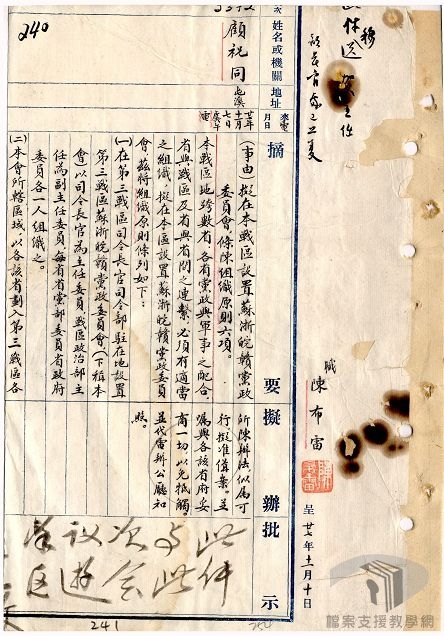 240
姓名或機關
顧祝同
地址
屯溪
來電
月日
廿七年
十一月
七日
電
摘要
(事由)擬在本戰區設置蘇浙皖贛黨政
委員會,條陳組織原則六項。
本戰區地跨數省,各省黨政與軍事之配合。
省與戰區及省與省間之連繫,必須有適當
之組織,擬在本區設置蘇浙皖贛黨政委員
會,茲將組織原則條列如下:
(一)在第三戰區司令長官司令部駐在地設置
第三戰區蘇浙皖贛黨政委員會(下稱本
會)以司令長官為主任委員,戰區政治部主
任為副主任委員,每省省黨部委員省政府
委員各一人組織之。
(二)本會所轄區域,以各該省劃入第三戰區各
擬辦
所陳辦法似屬可
行,擬准備案。並
囑與各該省府妥
商一切,以免抵觸。
並代電辦公廳知
照。
批示
此件
與此
次會
議遊
擊區
職
陳布雷
呈
廿七年十一月十日
241
檔案支援教學網